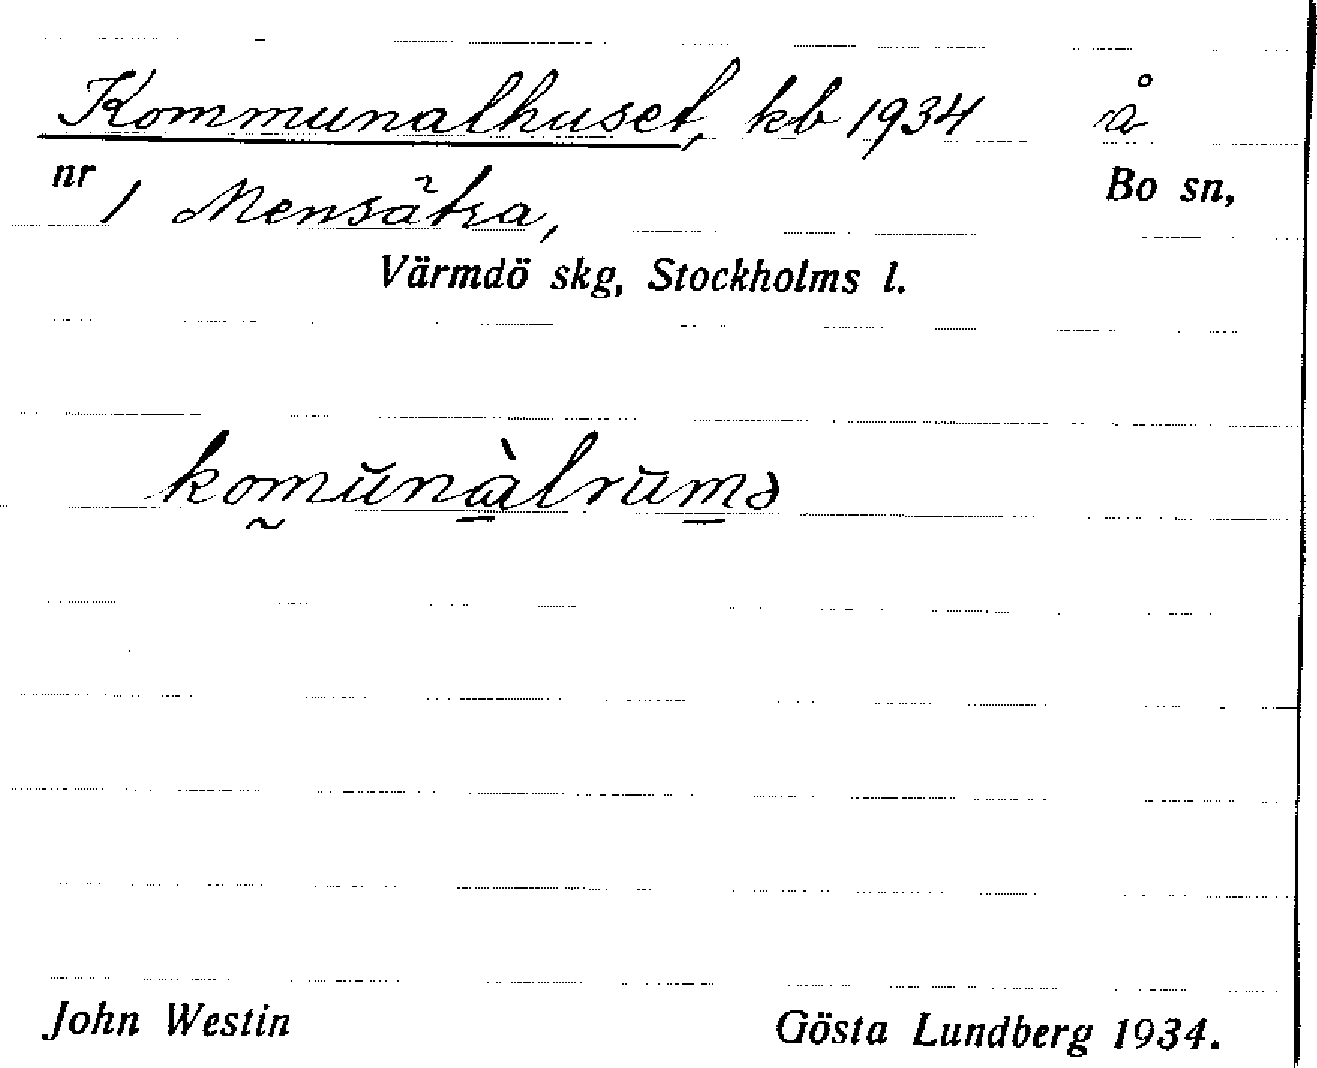 Kommunalhuset, kb 1934 å
nr 1 Mensätra, Bo sn,
Värmdö skg, Stockholms l.
komunàlrumə
John Westin Gösta Lundberg 1934.